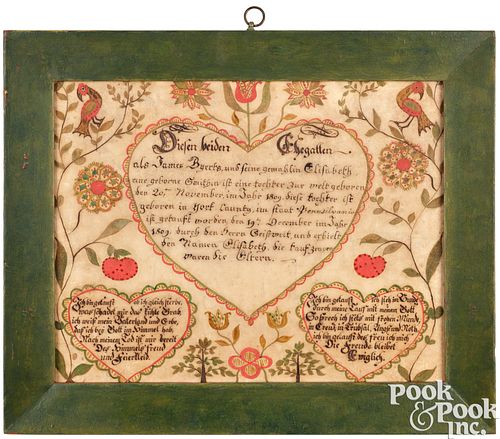 Diesen beiden Ehegatten
als James Byerts, und seine gemahlin Elisabeth
eine geborne Smithin ist eine tochter, Zur welt geboren
den 20ten November, im Jahr 1809. diese tochter ist
geboren in York Caunty, im staat Pennsilvania
ist getauft worden, den 19ten December im Jahr
1809. durch den Herrn Geistweit, und erhielt
den Namen Elisabeth, die taufzeugen
waren die Eltern.
Ich bin getauft ob ich gleich sterbe,
was schadet mir das kühle Grab,
ich weis mein Vaterland und Erbe,
das ich bey Gott im Himmel hab
Nach meinem Tod ist mir bereit
Des Himmels freud
und Feierkleid.
Ich bin getauft ich steh im Bunde
durch meine Tauf mit meinem Gott
So sprech ich stets mit frohem Munde
in Creutz in Trübsal, Angst und Noth
ich bin getauft des freu ich mich
Die Freude bleibet
Ewiglich.
POOK
& POOK
INC.